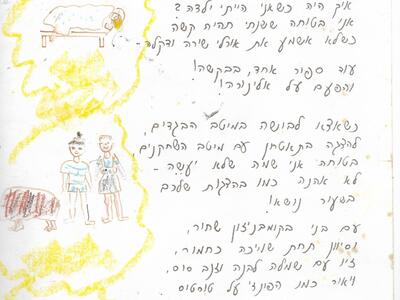 איך היה כשאני הייתי ילדה?
אני בטוחה ששנתי תהיה קשה
כשלא אשמע את אצלי שירה ודקלה
עוד סיפור אחד, בבקשה!
והפעם על אלינורה!
כשאצא לבושה במיטב הבגדים,
להצגה בתאטרון עם מיטב השחקנים,
בטוחה אני שמה שלא יעשה -
לא אהנה כמו בהצגות שלכם
בשעור נושא!
עם בני בקומבניזון שחור,
וסיוון תחת שמיכה כחמור,
זיו עם שמלה לבנה וזנב סוס,
ויאיר כמו הפינוק על טוסטוס